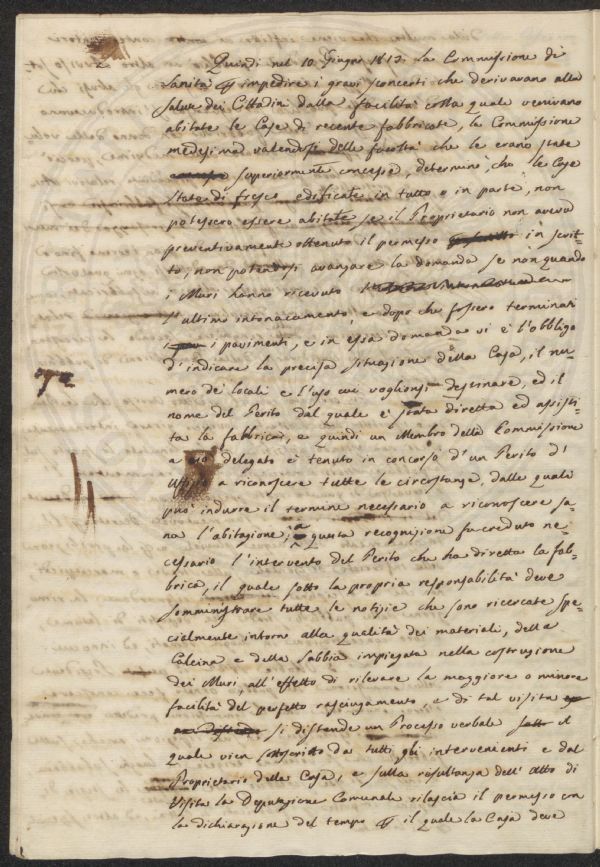 Quindi nel 10 Giugno 1813. la Commissione di
Sanità per impedire i gravi sconcerti che derivavano alla
salute dei Cittadini dalla facilità colla quale venivano
abitate le Case di recente fabbricate, la Commissione
medesima valendosi delle facoltà che le erano state
superiormente concesse, determinò, che le Case
state di fresco edificate in tutto o in parte, non
potessero essere abitate se il Proprietario non aveva
preventivamente ottenuto il permesso in scrit=
to, non potendosi avanzare la domanda se non quando
i Muri hanno ricevuto
l'ultimo intonacamento e dopo che fossero terminati
i pavimenti, e in essa domanda vi è l'obbligo
d'indicare la precisa situazione della Casa, il nu=
mero dei locali e l'uso cui voglionsi destinare, ed il
nome del Perito dal quale è stata diretta ed assisti=
ta la fabbrica, e quindi un Membro della Commissione
a ciò delegato è tenuto in concorso d'un Perito d'
Uffizio a riconoscere tutte le circostanze, dalle quali
può indurre il termine necessario a riconoscere sa=
na l'abitazione; a questa recognizione fu creduto ne=
cessario l'intervento del Perito che ha diretta la fab=
brica, il quale sotto la propria responsabilità deve
somministrare tutte le notizie che sono ricercate spe=
cialmente intorno alla qualità dei materiali, della
Calcina e della Sabbia impiegata nella costruzione
dei Muri, all'effetto di rilevare la maggiore o minore
facilità del perfetto rasciugamento, e di tal visita
si distende un Processo verbale il
quale vien sottoscritto da tutti gli intervenienti e dal
Proprietario della Casa, e sulla resultanza dell'Atto di
Visita la Deputazione Comunale rilascia il permesso con
la dichiarazione del tempo per il quale la Casa deve